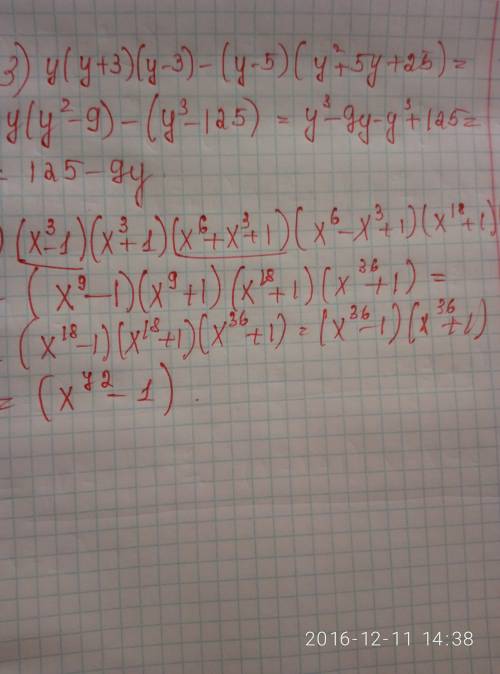 3) y(y+3)(y-3)-(y-5)(y²+5y+25)=
y(y²-9)-(y³-125)=y³-9y-y³+125=
= 125-9y
) (x³-1)(x³+1)(x⁶+x³+1)(x⁶-x³+1)(x¹⁸+1)
- (x⁹-1)(x⁹+1)(x¹⁸+1)(x³⁶+1)=
(x¹⁸-1)(x¹⁸+1)(x³⁶+1)=(x³⁶-1)(x³⁶+1)
= (x⁷²-1).
2016-12-11 14:38